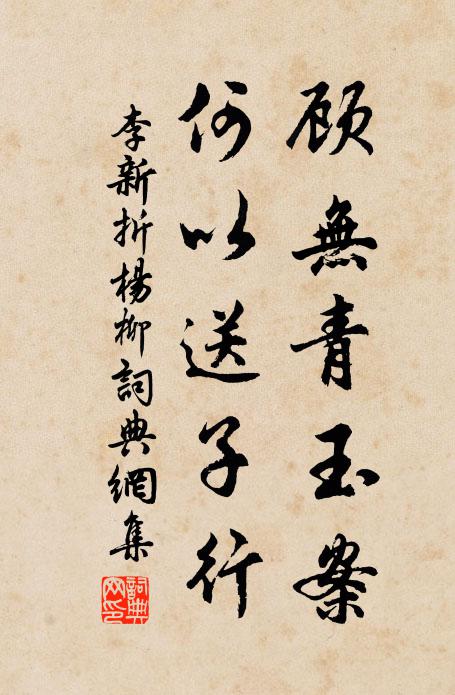 顾無青玉案
何以送子行
李新折楊柳詞典網集
詞典網印